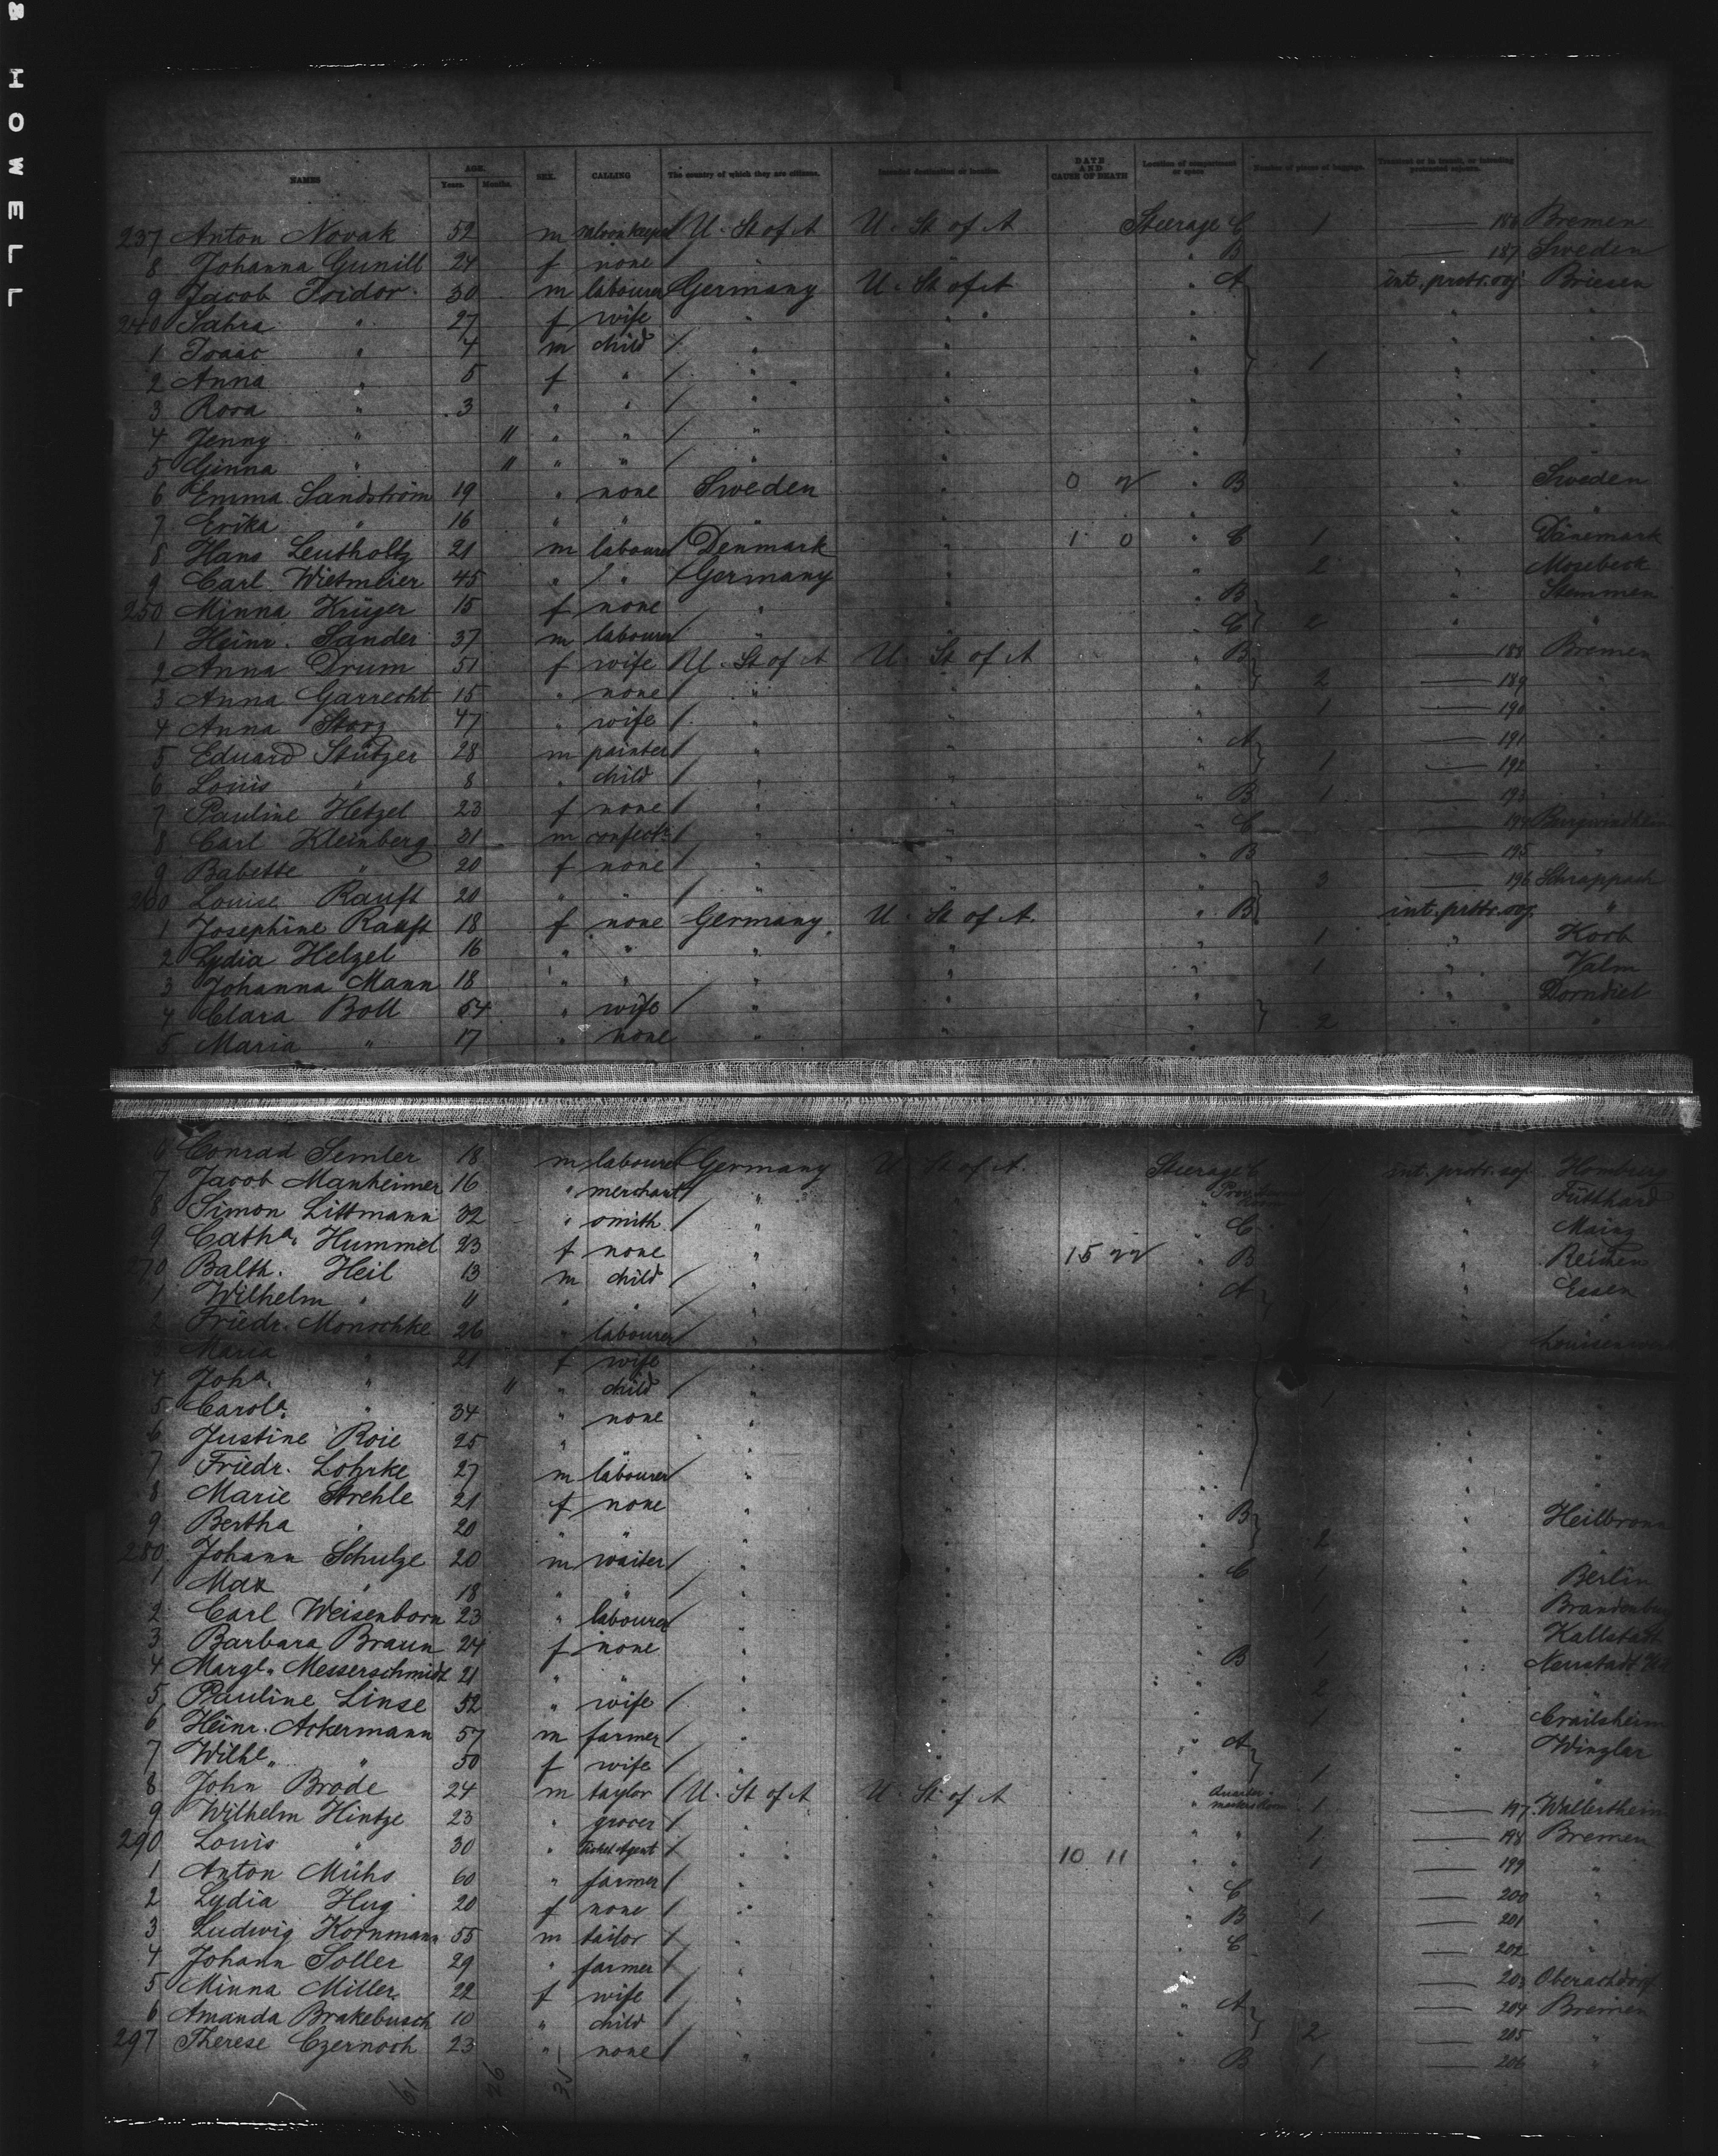 HOWELL
NAMES AGE. Years. Months. SEX. CALLING The country of which they are citizens. Intended destination or location. DATE AND CAUSE OF DEATH Location of compartment or space Number of pieces of baggage. Transient or in transit, or intending protracted sojourn.
237 Anton Novak 52 m saloonkeeper U. St of A U. St of A Steerage C 1 — 186 Bremen
8 Johanna Gunill 24 f none / " " " B — 187 Sweden
9 Jacob Isidor 30 m labourer Germany U. St of A " A int. protr. soj. Briesen
240 Sahra " 27 f wife " " " " "
1 Isaac " 4 m child / " " " " "
2 Anna " 5 f " / " " " 1 " "
3 Rosa " 3 " " / " " " " "
4 Jenny " 11 " " / " " " " "
5 Ginna " 11 " " / " " " " "
6 Emma Sandström 19 " none Sweden " 0 " B " Sweden
7 Erika " 16 " " " " " " "
8 Hans Leutholtz 21 m labourer Denmark " 1 0 " C 1 " Dänemark
9 Carl Wietmeier 45 " / " Germany " " 2 " Mosebeck
250 Minna Krüger 15 f none " " " B " Stemmen
1 Heinr. Sander 37 m labourer " " " C 2 " "
2 Anna Drum 51 f wife / U. St of A U. St of A " B — 188 Bremen
3 Anna Garrecht 15 " none / " " " 2 — 189 "
4 Anna Storz 47 " wife / " " " 1 — 190 "
5 Eduard Stützer 28 m painter / " " " A — 191 "
6 Louis " 8 " child / " " " 1 — 192 "
7 Pauline Hetzel 23 f none / " " " B 1 — 193 "
8 Carl Kleinberg 31 m confectr / " " " C — 194 Burgwindheim
9 Babette " 20 f none / " " " B — 195 "
260 Louise Rauft 20 " " / " " " 3 — 196 Schrappach
1 Josephine Rauft 18 f none Germany U. St of A. " B int. protr. soj. "
2 Lydia Helzel 16 " " " " " 1 " Korb
3 Johanna Mann 18 " " " " " 1 " Valm
4 Clara Boll 54 " wife / " " " " Dorndiel
5 Maria " 17 " none " " " 2 " "
6 Conrad Semler 18 m labourer Germany U. St of A. Steerage C int. protr. soj. Homberg
7 Jacob Manheimer 16 " merchant / " " " " Fütthard
8 Simon Littmann 32 " smith / " " " C " Mainz
9 Catha. Hummel 23 f none " " 15 " B " Reichen
270 Balth. Heil 13 m child / " " " A " Essen
1 Wilhelm " 11 " " / " " " " "
2 Friedr. Monschke 26 " labourer / " " " "
3 Maria " 21 f wife " " " "
4 Joha. " 11 " child / " " " "
5 Carola. " 34 " none " " " " "
6 Justine Roie 25 " " " " " "
7 Friedr. Lohrke 27 m labourer / " " " " "
8 Marie Strehle 21 f none " " " B " Heilbronn
9 Bertha " 20 " " " " " 2 " "
280 Johann Schulze 20 m waiter / " " " C 1 " Berlin
1 Max " 18 " " / " " " 1 " Brandenburg
2 Carl Weisenborn 23 " labourer / " " " 1 " Kallstadt
3 Barbara Braun 24 f none " " " B 1 " Neustadt
4 Margl. Messerschmidt 21 " " " " " 2 " "
5 Pauline Linse 52 " wife / " " " 1 " Crailsheim
6 Heinr. Ackermann 57 m farmer / " " " A " Winzlar
7 Wilhe. " 50 f wife / " " " 1 " "
8 John Brode 24 m taylor / U. St of A U. St of A " Quartermasters Room 1 — 197 Wallertheim
9 Wilhelm Hintze 23 " grocer / " " " " 1 — 198 Bremen
290 Louis " 30 " Ticket Agent / " " 10 11 " " 1 — 199 "
1 Anton Mühs 60 " farmer / " " " C — 200 "
2 Lydia Hug 20 f none / " " " B 1 — 201 "
3 Ludwig Kornmann 55 m tailor / " " " C — 202 "
4 Johann Soller 29 " farmer / " " " — 203 Oberachdorf
5 Minna Miller 22 f wife / " " " A — 204 Bremen
6 Amanda Brakebusch 10 " child / " " " 2 — 205 "
297 Therese Czernoch 23 " none / " " " B 1 — 206 "
61 26 35